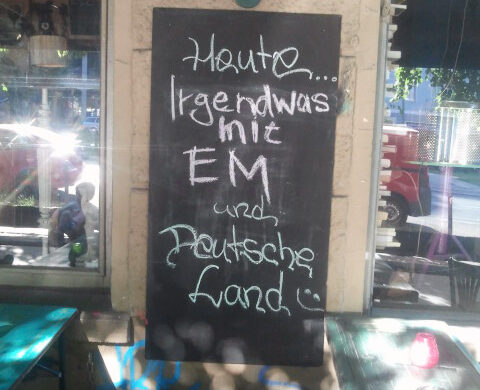 Heute...
Irgendwas
mit
EM
und
Deutsche
Land :)